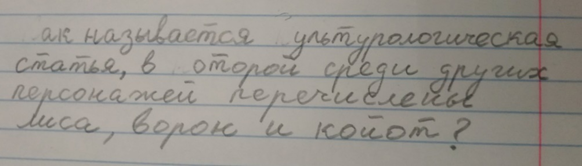 ак называется ультурологическая
статья, в оторой среди других
персонажей перечислены
лиса, ворон и койот?